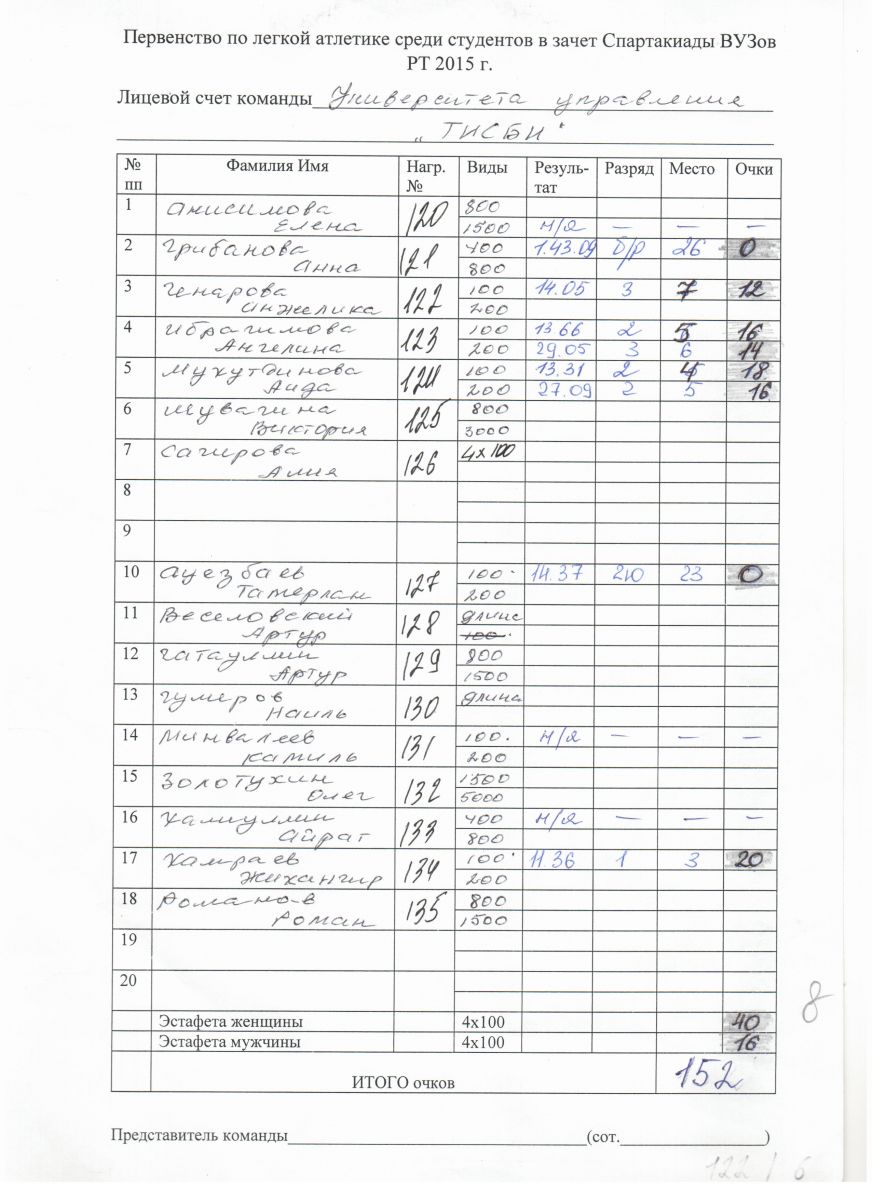 Первенство по легкой атлетике среди студентов в зачет Спартакиады ВУЗов
РТ 2015 г.
Лицевой счет команды Университета управления
„ТИСБИ"
№ пп Фамилия Имя Нагр. № Виды Резуль-тат Разряд Место Очки
1 Анисимова 120 800
Елена 1500 н/я — — —
2 Грибанова 121 400 1.43.09 б/р 26 0
Анна 800
3 Генарова 122 100 14.05 3 7 12
Анжелика 200
4 Ибрагимова 123 100 13 66 2 5 16
Ангелина 200 29.05 3 6 14
5 Мухутдинова 124 100 13.31 2 4 18
Аида 200 27.09 2 5 16
6 Шувагина 125 800
Виктория 3000
7 Сагирова 126 4х100
Алия
8
9
10 Ауезбаев 127 100 14.37 2ю 23 0
Тамерлан 200
11 Веселовский 128 длина
Артур 100
12 Гатауллин 129 800
Артур 1500
13 Гумеров 130 длина
Наиль
14 Минвалеев 131 100. н/я — — —
Камиль 200
15 Золотухин 132 1500
Олег 5000
16 Халиуллин 133 400 н/я — — —
Айрат 800
17 Хамраев 134 100 11.36 1 3 20
Жихангир 200
18 Романов 135 800
Роман 1500
19
20
Эстафета женщины 4х100 40
Эстафета мужчины 4х100 16
ИТОГО очков 152
8
Представитель команды (сот. )
122 / 6